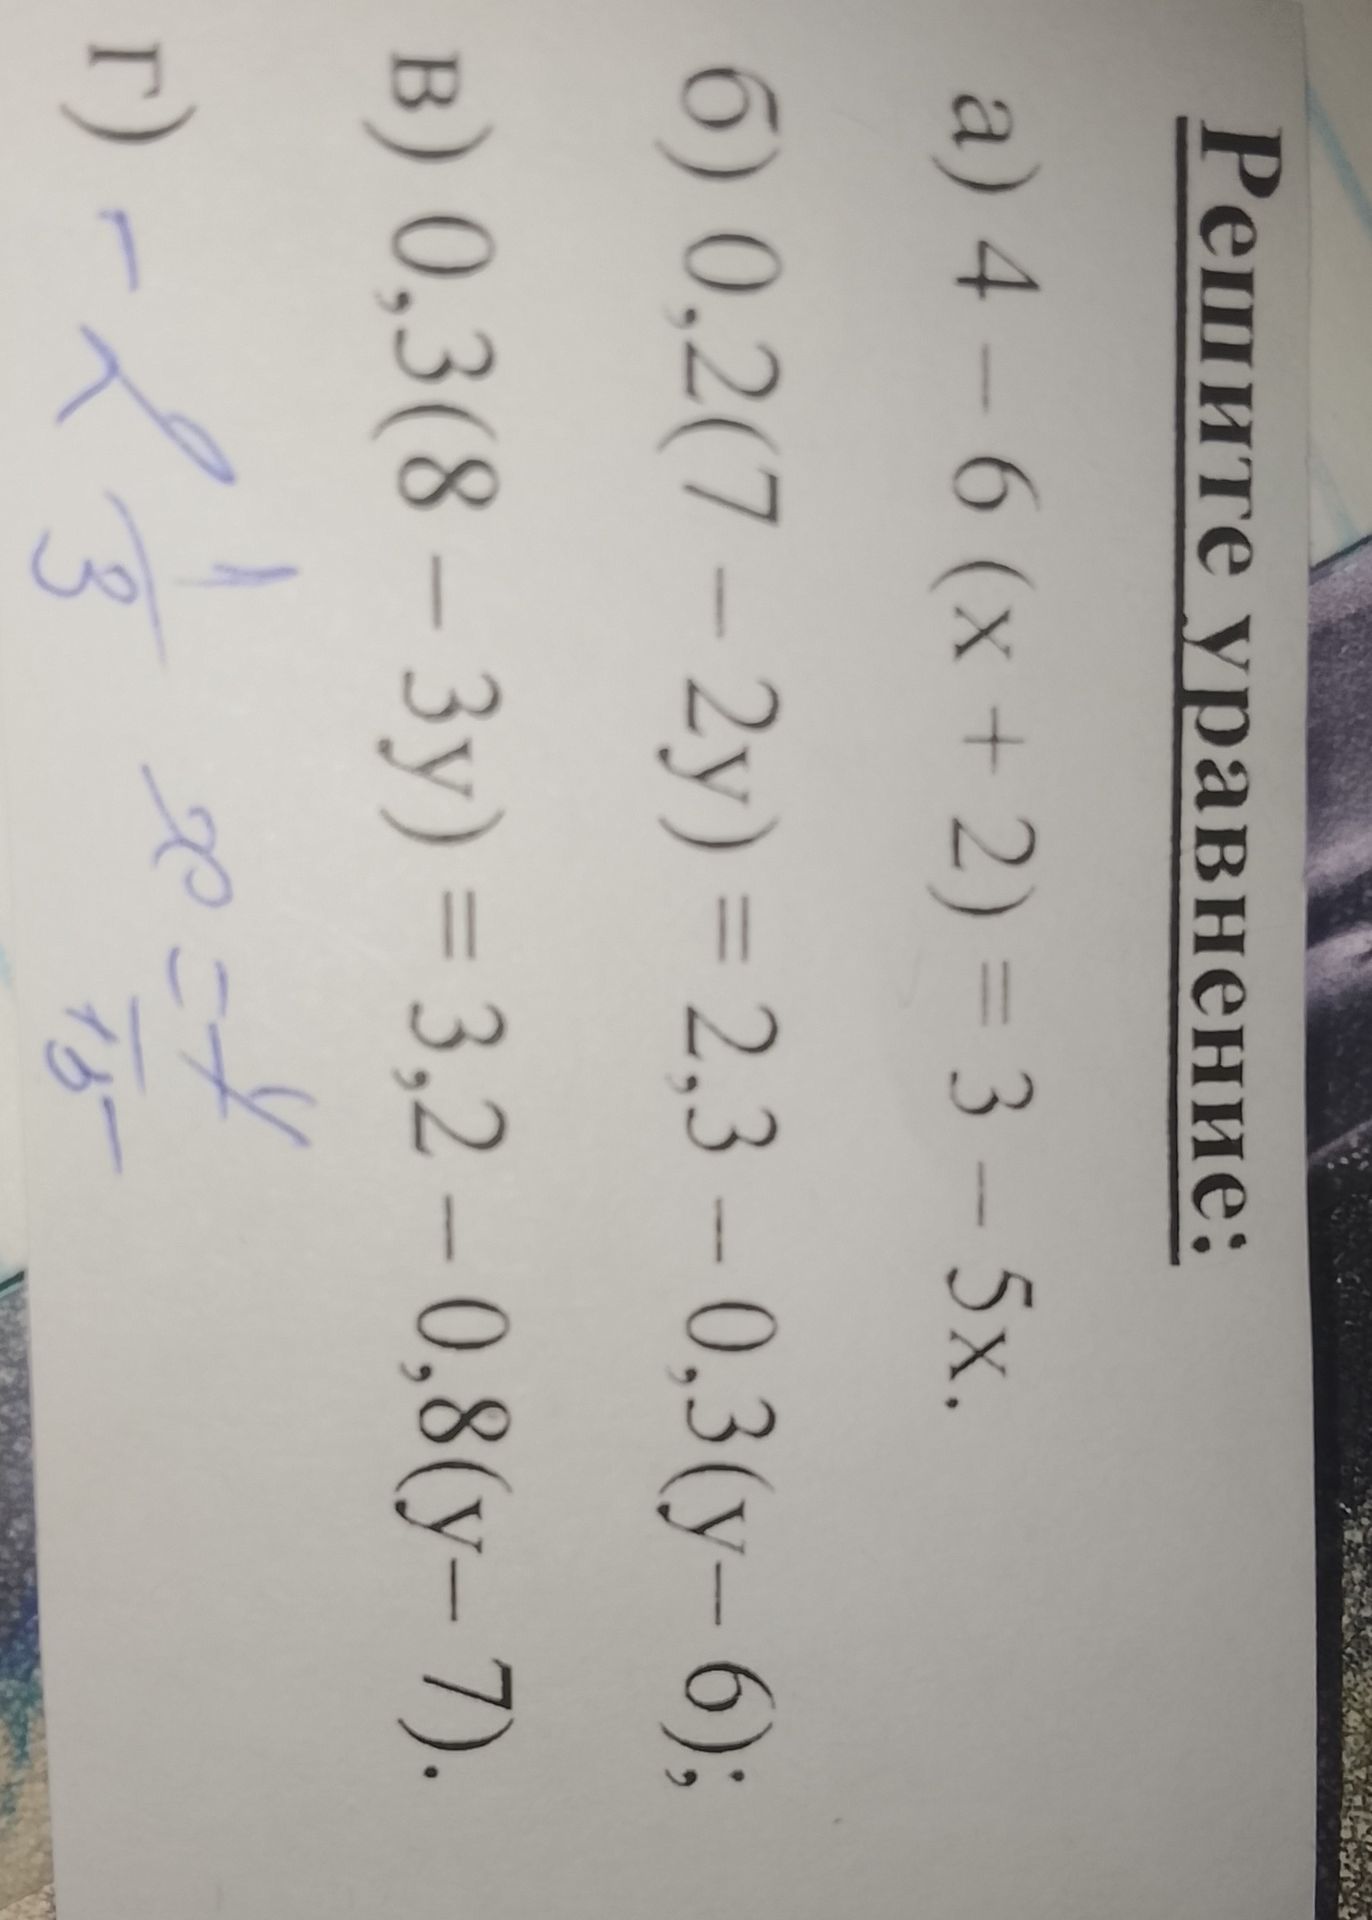 Решите уравнение:
а) 4 – 6 (х + 2) = 3 – 5х.
б) 0,2(7 – 2у) = 2,3 – 0,3(у– 6);
в) 0,3(8 – 3у) = 3,2 – 0,8(у– 7).
г) - 2 1/3 x = 4/15